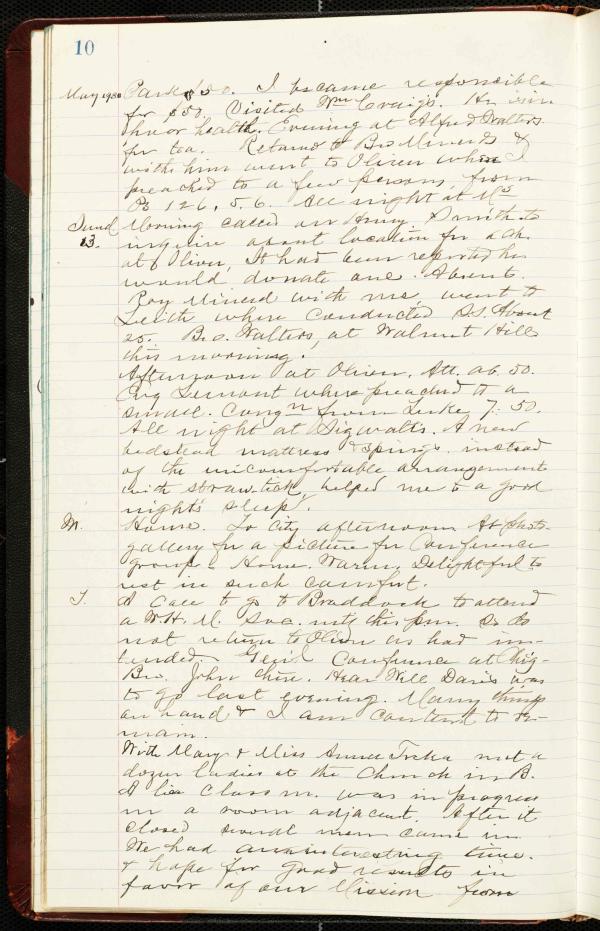 10
May 1980 Park $50. I became responsible
for $50. Visited Wm Craig's. He is in
poor health. Evening at Alfred Walters
for tea. Returned to Bro Minerd's &
with him went to Oliver where I
preached to a few persons, from
Ps 126, 5. 6. All night at M's
Sund Morning called on Henry Smith to
13. inquire about location for a Ch.
at Oliver, It had been reported he
would donate one. Absent.
Roy Minerd with me, went to
Leith, where conducted S.S. About
25. Bro. Walters, at Walnut Hill
this morning.
Afternoon at Oliver. Att. ab. 50.
Evg Lemont where preached to a
small Congn from Luke 7: 50.
All night at Sigwalt's. A new
bedstead mattress & springs instead
of the uncomfortable arrangement
with straw-tick, helped me to a good
night's sleep.
M. Home. To City afternoon At photo-
gallery for a picture for Conference
group. Home. Warm. Delightful to
rest in such comfort.
T. A Call to go to Braddock to attend
a W.H.M. Soc. mtg this p.m. So do
not return to Oliver as had in-
tended. Gen'l Conference at Chig-
Bro. John there. Hear Will Davis was
to go last evening. Many things
on hand & I am content to re-
main.
With Mary & Miss Anna met a
dozen ladies at the Church in B.
A Class m. was in progress
in a room adjacent. After it
closed several men came in.
We had an interesting time.
& hope for good results in
favor of our Mission from